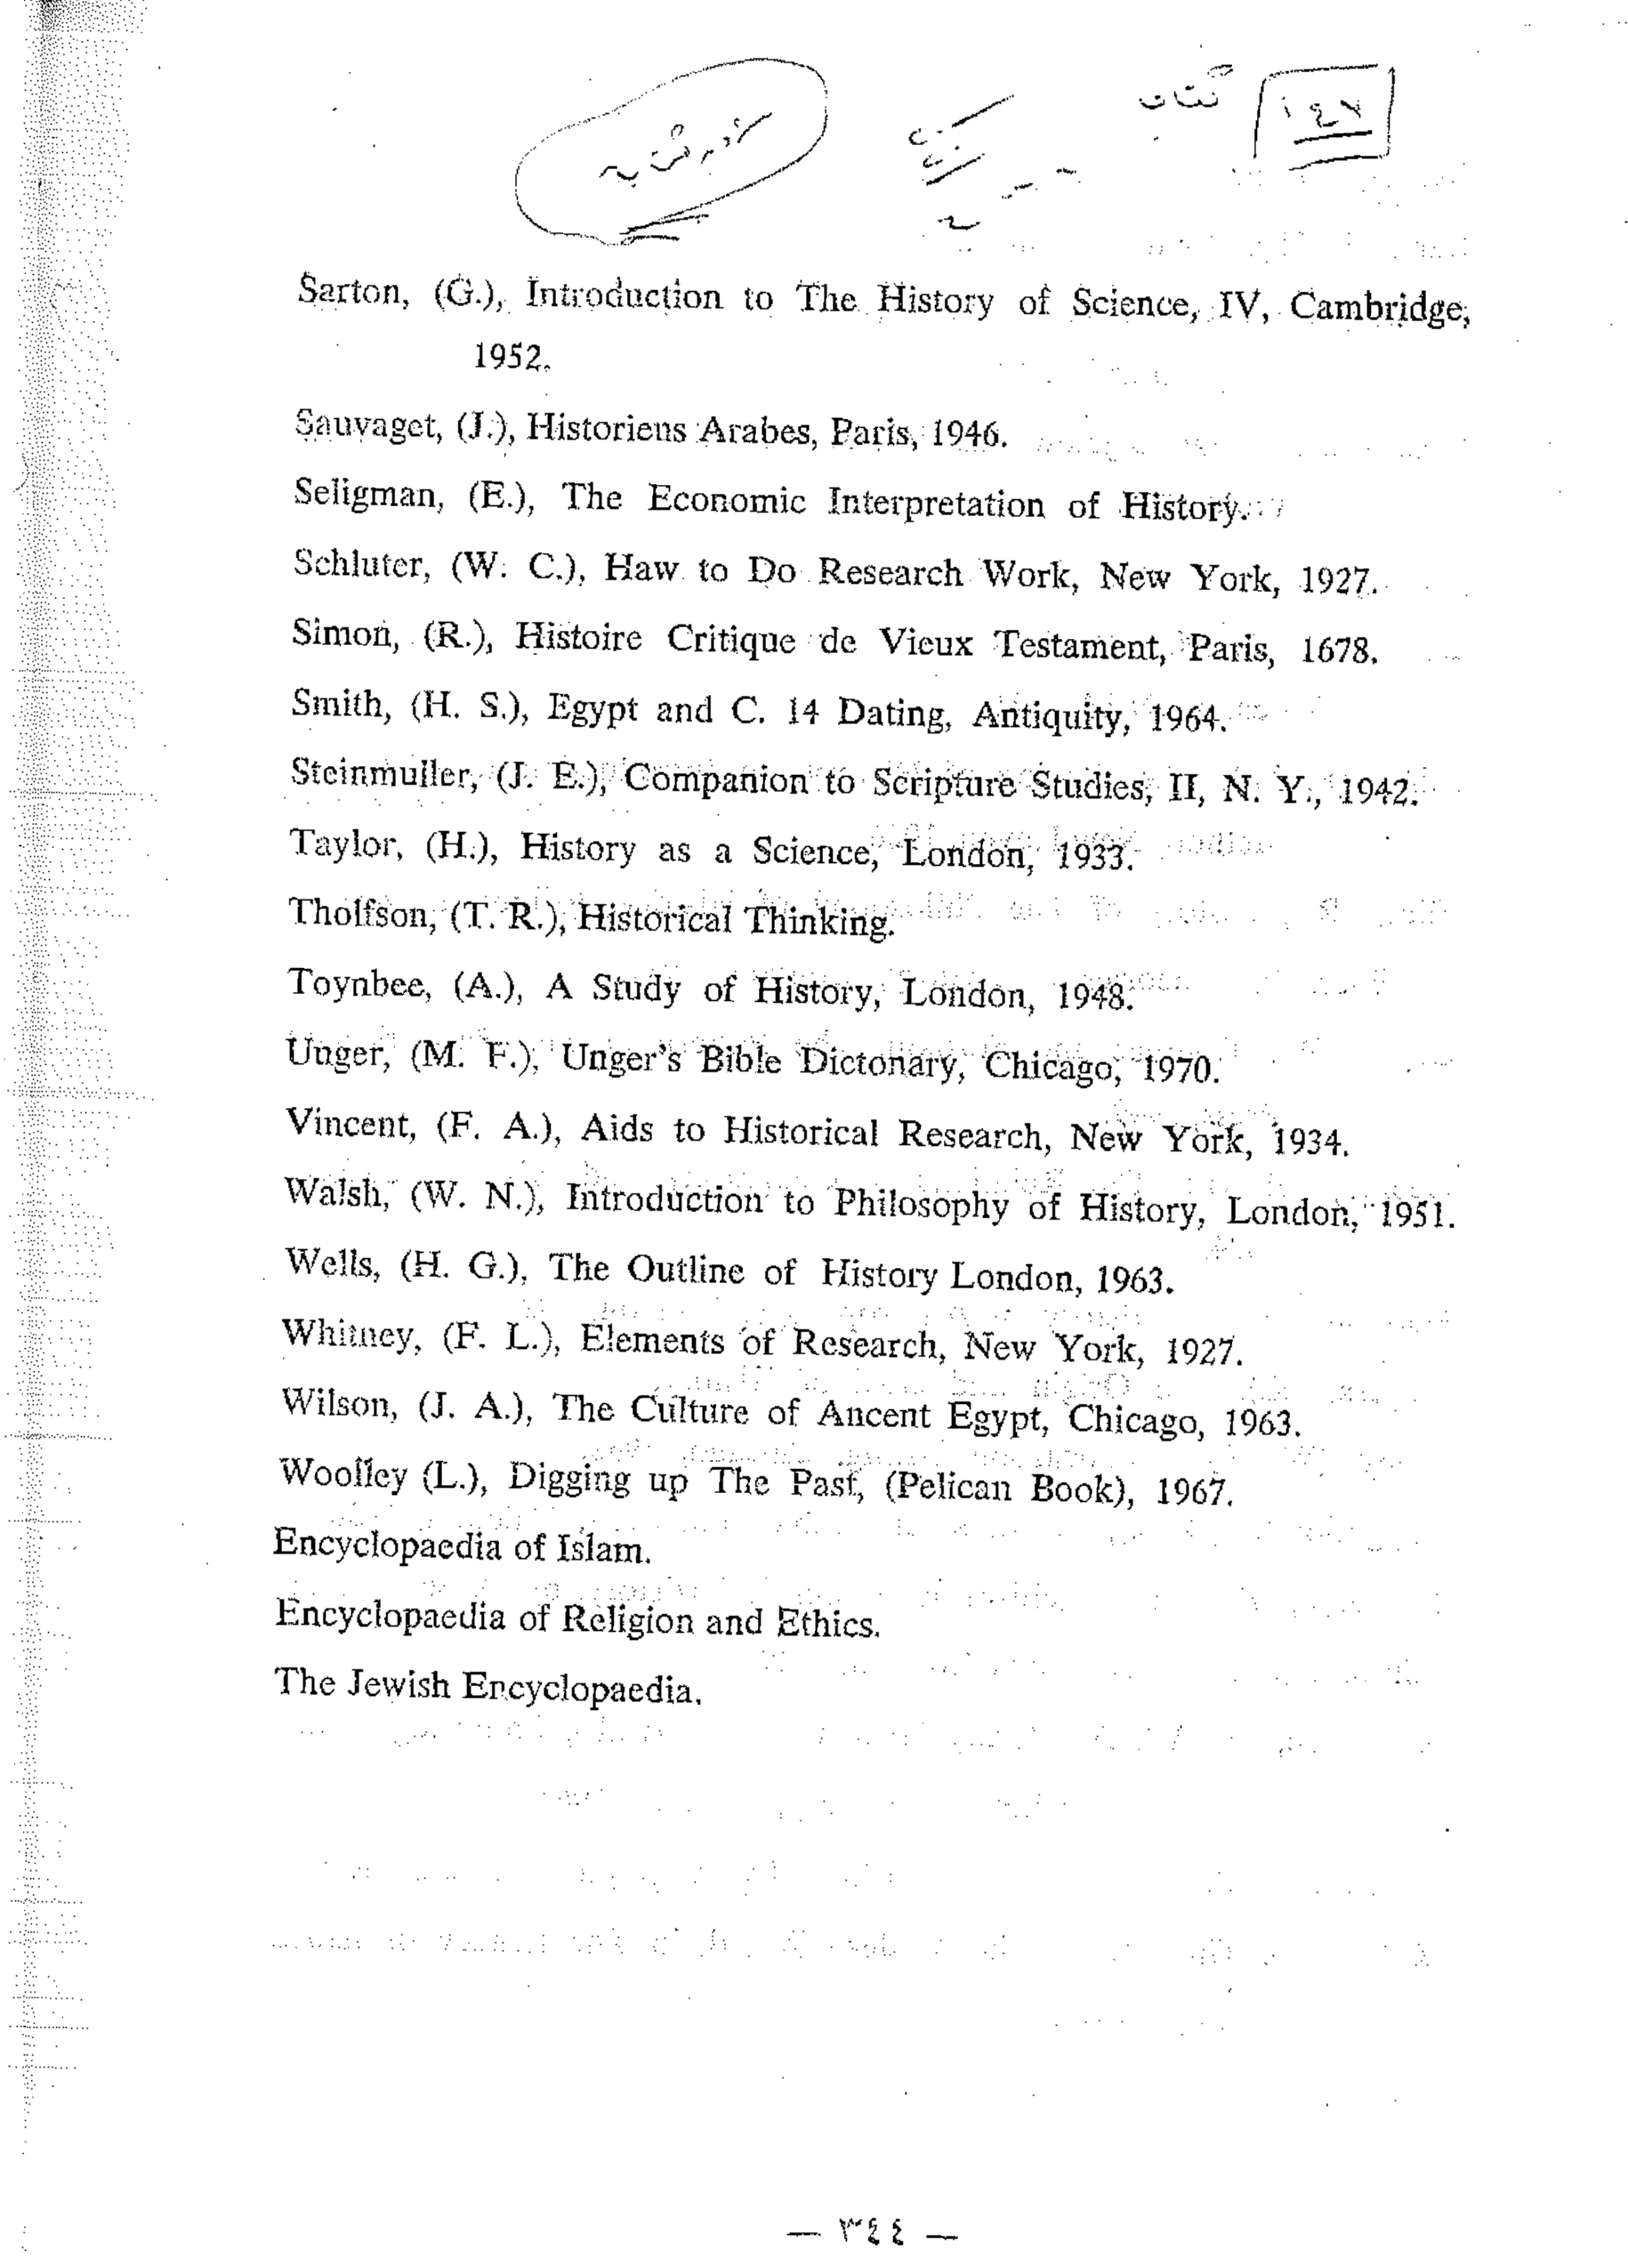 كتاب
١٤٧
Sarton, (G.), Introduction to The History of Science, IV, Cambridge,
1952.
Sauvaget, (J.), Historiens Arabes, Paris, 1946.
Seligman, (E.), The Economic Interpretation of History.
Schluter, (W. C.), Haw to Do Research Work, New York, 1927.
Simon, (R.), Histoire Critique de Vieux Testament, Paris, 1678.
Smith, (H. S.), Egypt and C. 14 Dating, Antiquity, 1964.
Steinmuller, (J. E.), Companion to Scripture Studies, II, N. Y., 1942.
Taylor, (H.), History as a Science, London, 1933.
Tholfson, (T. R.), Historical Thinking.
Toynbee, (A.), A Study of History, London, 1948.
Unger, (M. F.), Unger's Bible Dictonary, Chicago, 1970.
Vincent, (F. A.), Aids to Historical Research, New York, 1934.
Walsh, (W. N.), Introduction to Philosophy of History, London, 1951.
Wells, (H. G.), The Outline of History London, 1963.
Whitney, (F. L.), Elements of Research, New York, 1927.
Wilson, (J. A.), The Culture of Ancent Egypt, Chicago, 1963.
Woolley (L.), Digging up The Past, (Pelican Book), 1967.
Encyclopaedia of Islam.
Encyclopaedia of Religion and Ethics.
The Jewish Encyclopaedia.
— ٣٤٤ —